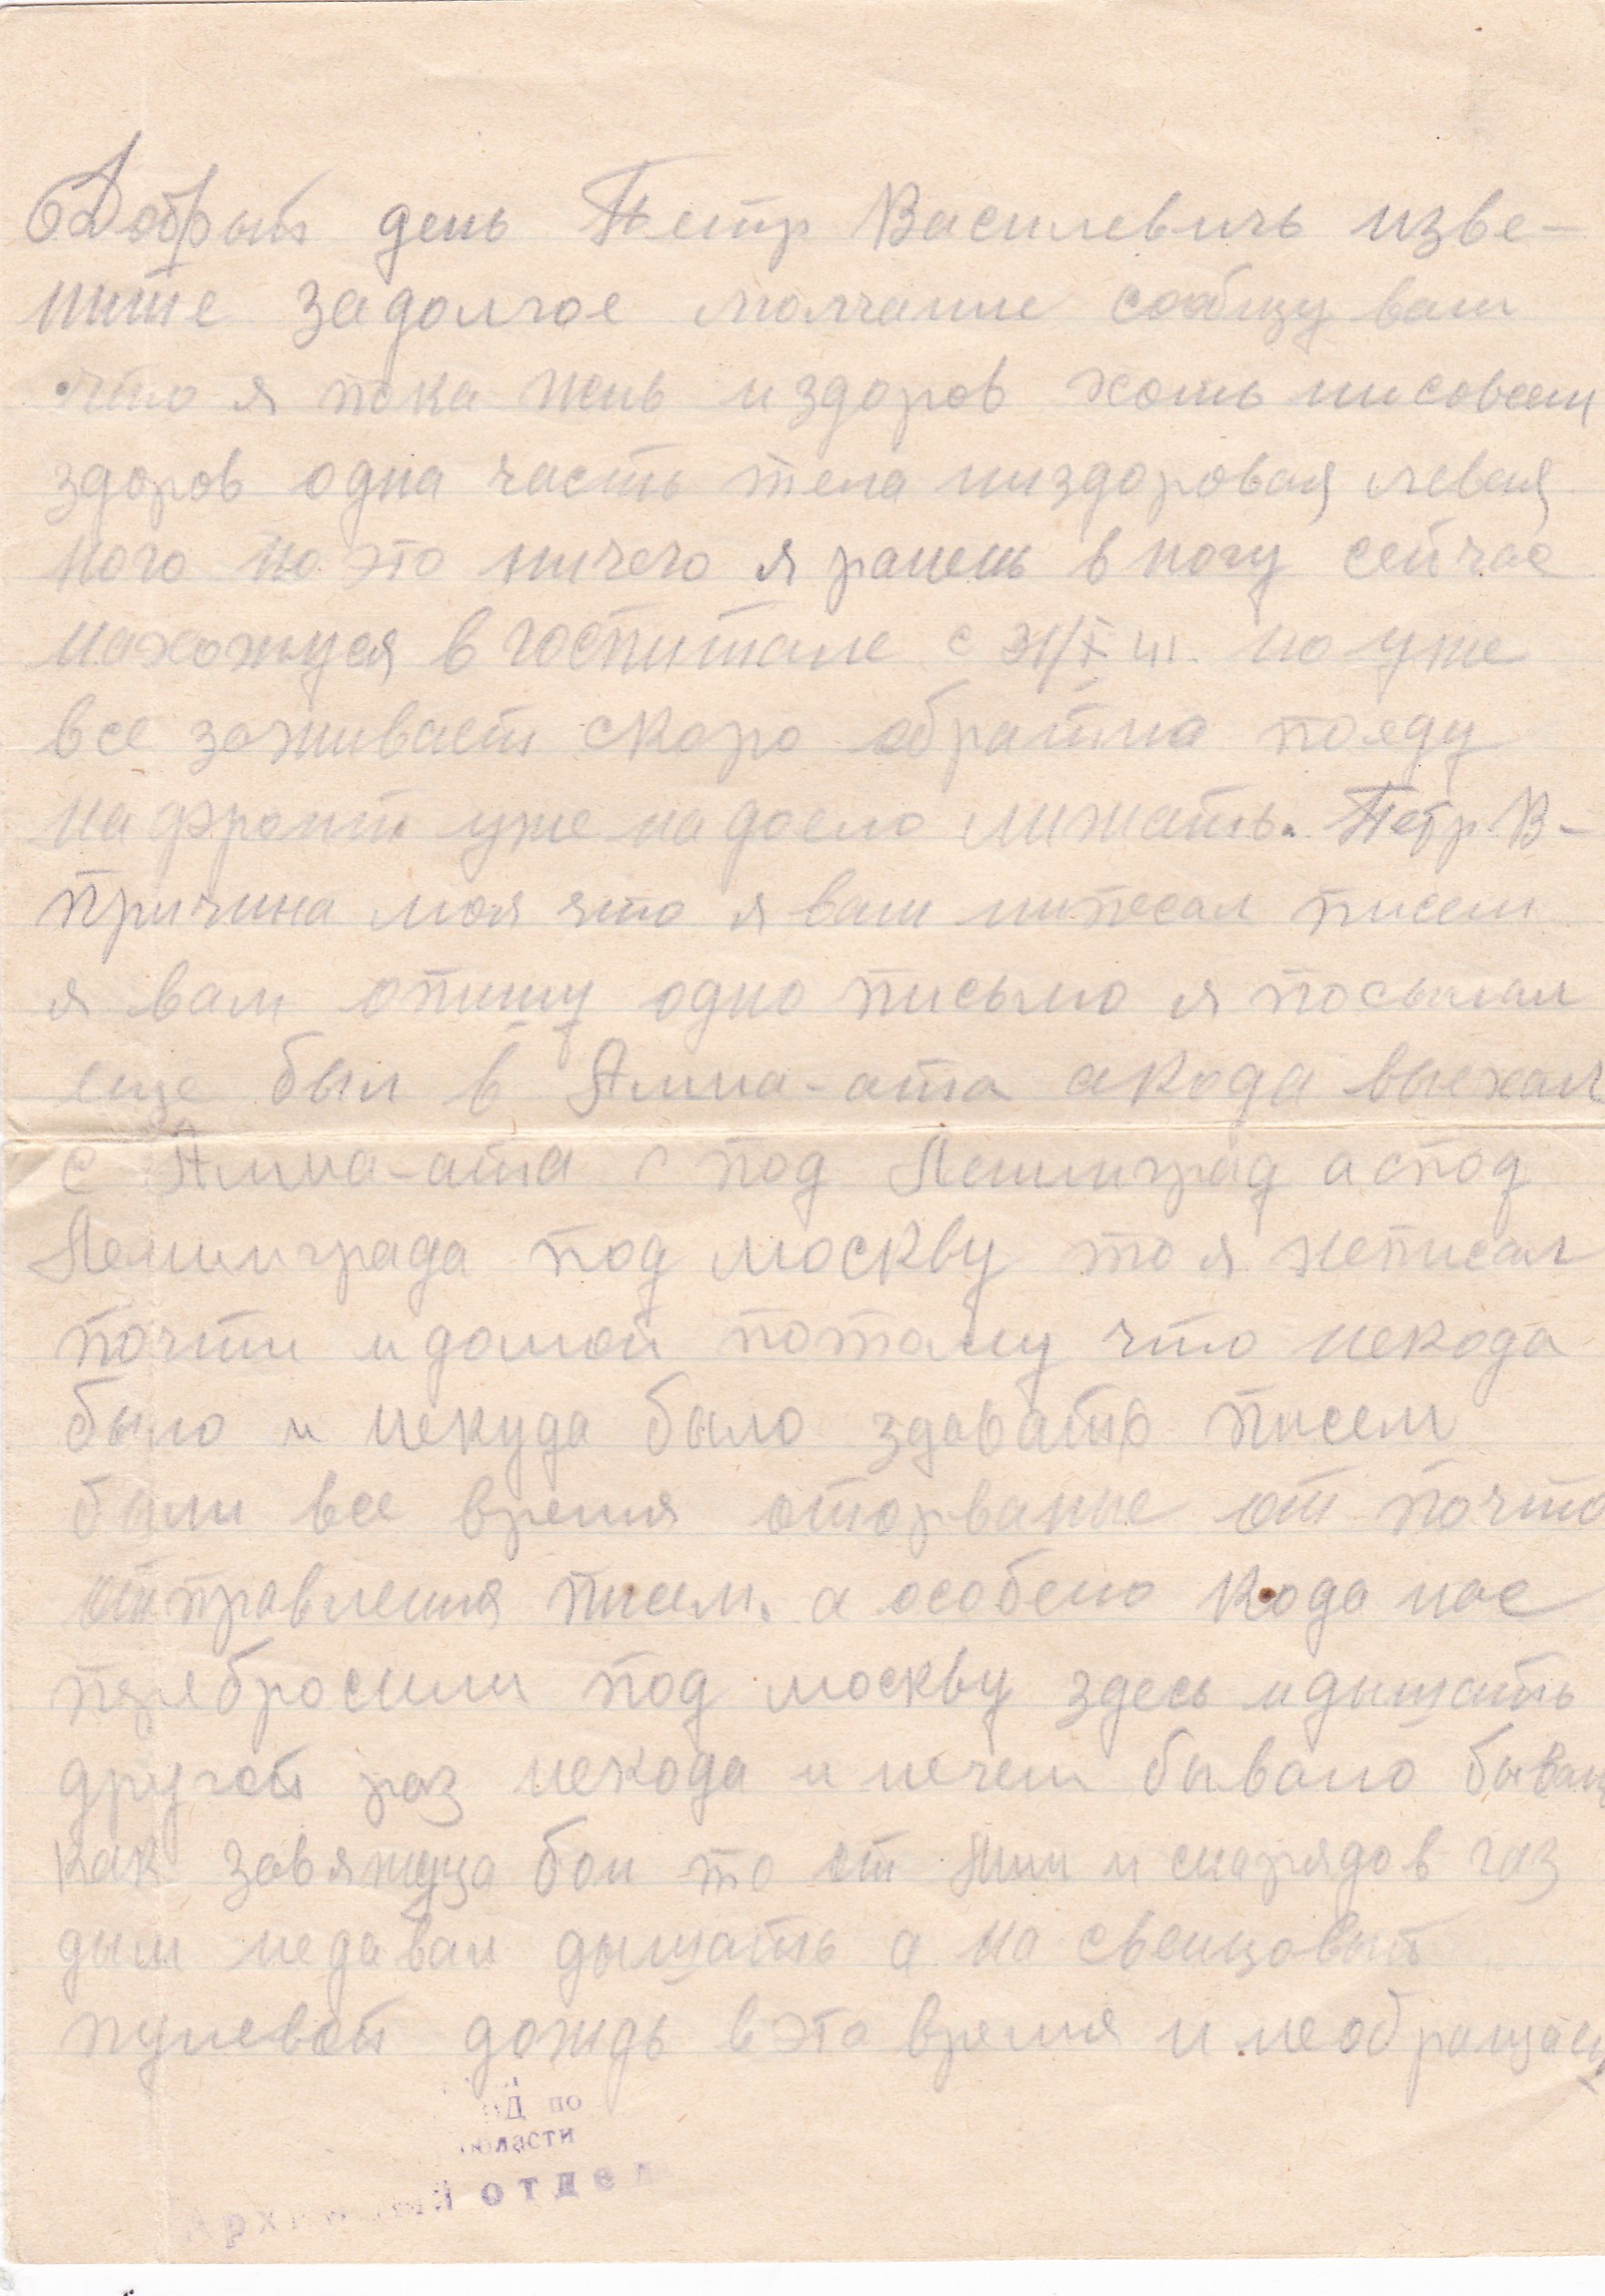 Добрый день Петр Василевичь изве-
ните задолгое молчание сообщу вам
что я пока жив и здоров хоть нисовсем
здоров одна часть тела низдоровая левая
нога но это ничего я ранень в ногу сейчас
нахожуся в госпитале с но уже
все заживает скоро обратно поеду
на фронт уже надоело лижать. Петр В-
причина моя что я вам нипесал писем
я вам опишу одно письмо я посылал
еще был в Алма-ата акода выехал
с Алма-ата под Ленинград аспод
Ленинграда под москву то я неписал
почти и домой потому что некода
было и некуда было здавать писем
были все время оторваные от почто
отправления писем. а особено кода нас
перебросили под москву здесь идышать
другой раз некода и нечем бывало бывало
как завяжуца бои то от мин и снарядов газ
дым недавал дышать а на свенцовый
пулевой дождь в это время и необращаеш
Д по
области
Архивный отдел